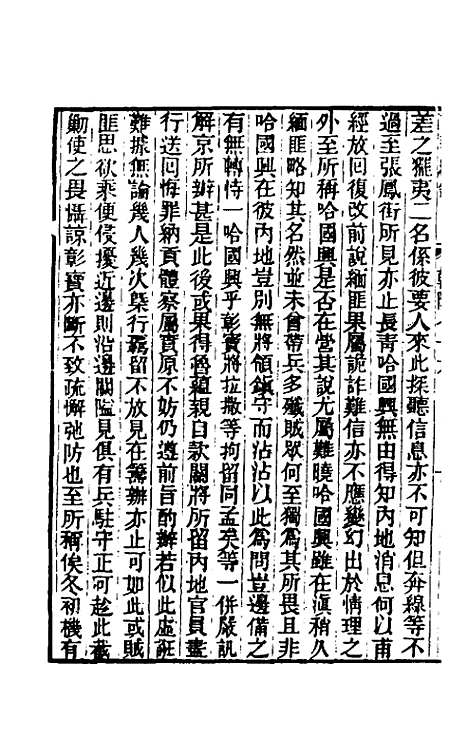 差之擺夷一名係彼要人來此探聽信息亦不可知但奔線等不
過至張鳳街所見亦止長靑哈國興無由得知內地消息何以甫
經放回復改前說緬匪果屬詭詐難信亦不應變幻出於情理之
外至所稱哈國興是否在營其說尤屬難曉哈國興雖在滇稍久
緬匪略知其名然並未曾帶兵多殲賊眾何至獨爲其所畏且非
哈國興在彼內地豈別無將領鎮守而沾沾以此爲問豈邊備之
有無轉恃一哈國興乎彰寶將拉撒等拘留同孟矣等一併嚴訊
解京所辦甚是此後或果得魯蘊親自款關將所留內地官員盡
行送回悔罪納貢體察屬眞原不妨仍遵前旨酌辦若似此虛誑
難據無論幾人幾次槩行羈留不放見在籌辦亦止可如此或賊
匪思欲乘便侵擾近邊則沿邊關隘見俱有兵駐守正可趁此截
勦使之畏懾諒彰寶亦斷不致疏懈弛防也至所稱俟冬初機有